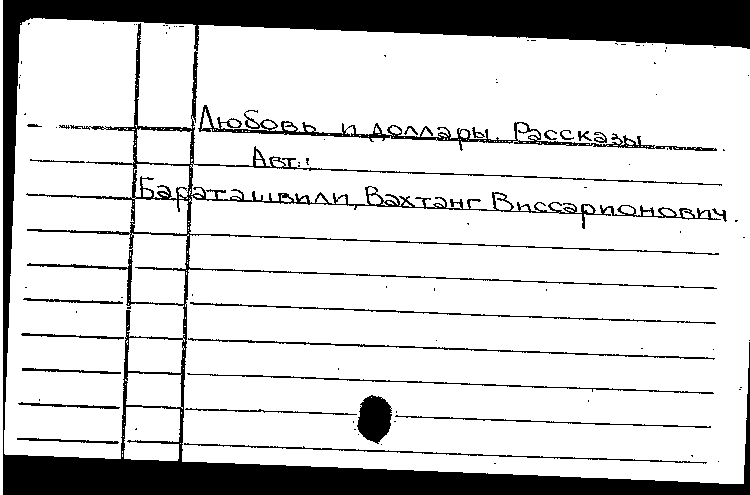 Любовь и доллары. Рассказы
Авт.:
Бараташвили, Вахтанг Виссарионович.